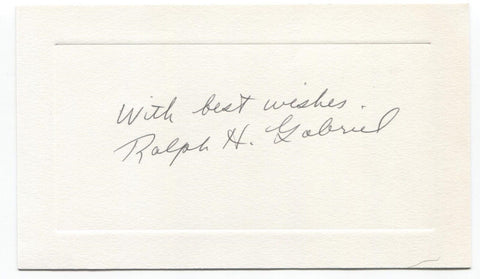 With best wishes.
Ralph H. Gabriel